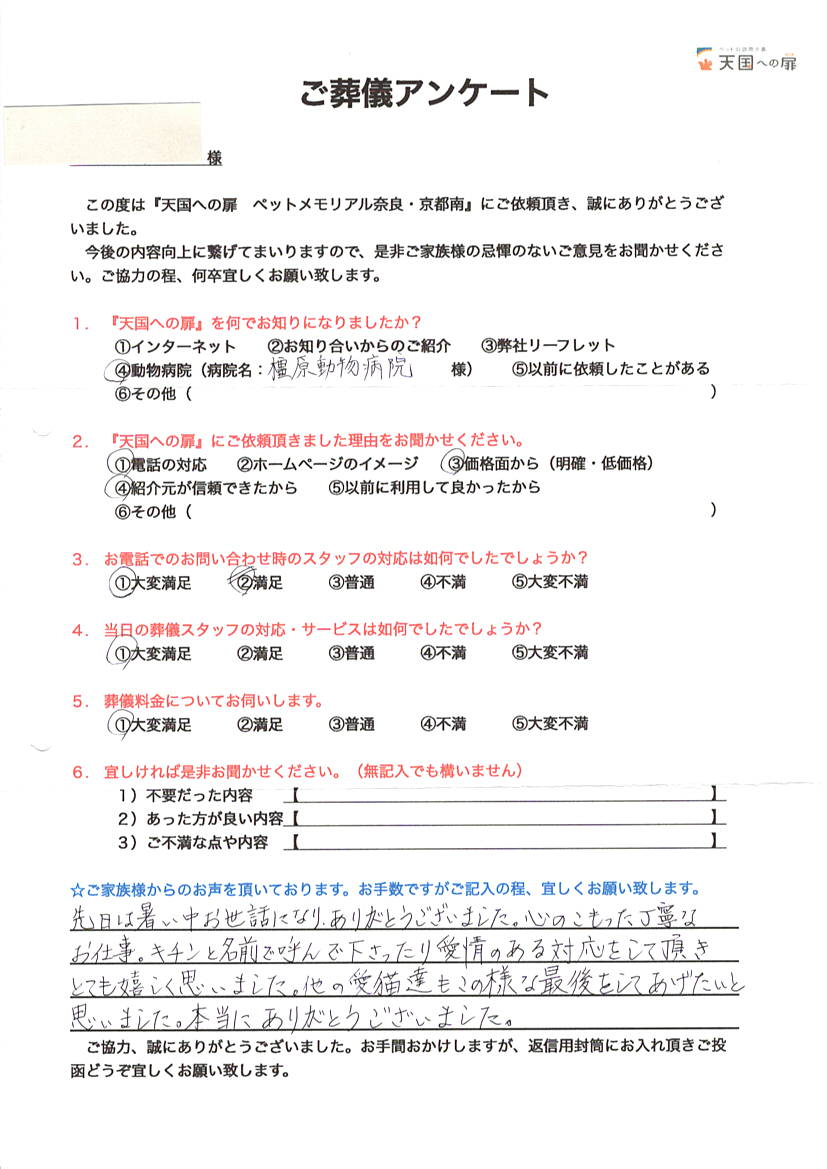 ペットの訪問火葬
天国への扉
ご葬儀アンケート
様
この度は『天国への扉　ペットメモリアル奈良・京都南』にご依頼頂き、誠にありがとうござ
いました。
今後の内容向上に繋げてまいりますので、是非ご家族様の忌憚のないご意見をお聞かせくださ
い。ご協力の程、何卒宜しくお願い致します。
１．『天国への扉』を何でお知りになりましたか？
①インターネット　②お知り合いからのご紹介　③弊社リーフレット
④動物病院（病院名：橿原動物病院　様）　⑤以前に依頼したことがある
⑥その他（　）
２．『天国への扉』にご依頼頂きました理由をお聞かせください。
①電話の対応　②ホームページのイメージ　③価格面から（明確・低価格）
④紹介元が信頼できたから　⑤以前に利用して良かったから
⑥その他（　）
３．お電話でのお問い合わせ時のスタッフの対応は如何でしたでしょうか？
①大変満足　②満足　③普通　④不満　⑤大変不満
４．当日の葬儀スタッフの対応・サービスは如何でしたでしょうか？
①大変満足　②満足　③普通　④不満　⑤大変不満
５．葬儀料金についてお伺いします。
①大変満足　②満足　③普通　④不満　⑤大変不満
６．宜しければ是非お聞かせください。（無記入でも構いません）
１）不要だった内容　【　】
２）あった方が良い内容【　】
３）ご不満な点や内容　【　】
☆ご家族様からのお声を頂いております。お手数ですがご記入の程、宜しくお願い致します。
先日は暑い中お世話になり、ありがとうございました。心のこもった丁寧な
お仕事。キチンと名前で呼んで下さったり愛情のある対応をして頂き
とても嬉しく思いました。他の愛猫達もこの様な最後をしてあげたいと
思いました。本当にありがとうございました。
ご協力、誠にありがとうございました。お手間おかけしますが、返信用封筒にお入れ頂きご投
函どうぞ宜しくお願い致します。